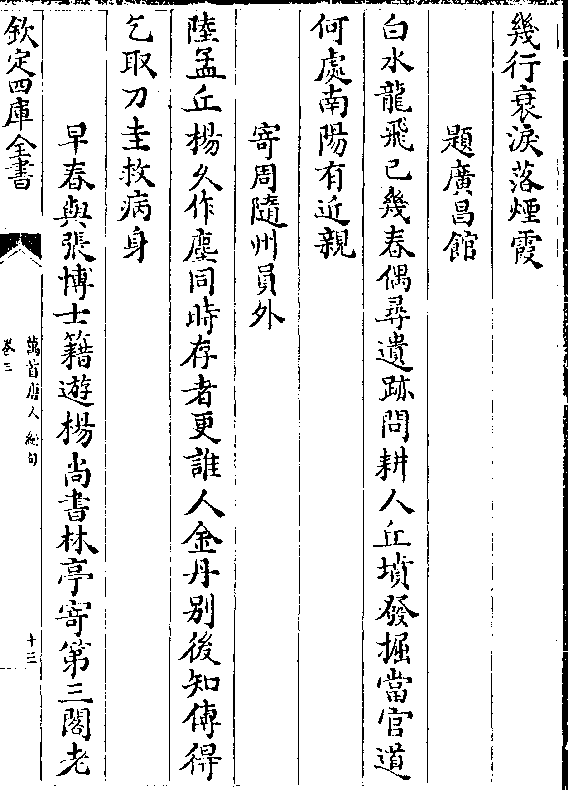 幾行衰淚落煙霞
題廣昌館
白水龍飛已幾春偶尋遺跡問耕人丘墳發掘當官道
何處南陽有近親
寄周隨州員外
陸孟丘楊久作塵同時存者更誰人金丹别後知傳得
乞取刀圭救病身
早春與張博士籍遊楊尚書林亭寄第三閣老
欽定四庫全書
萬首唐人絶句
卷三
十三